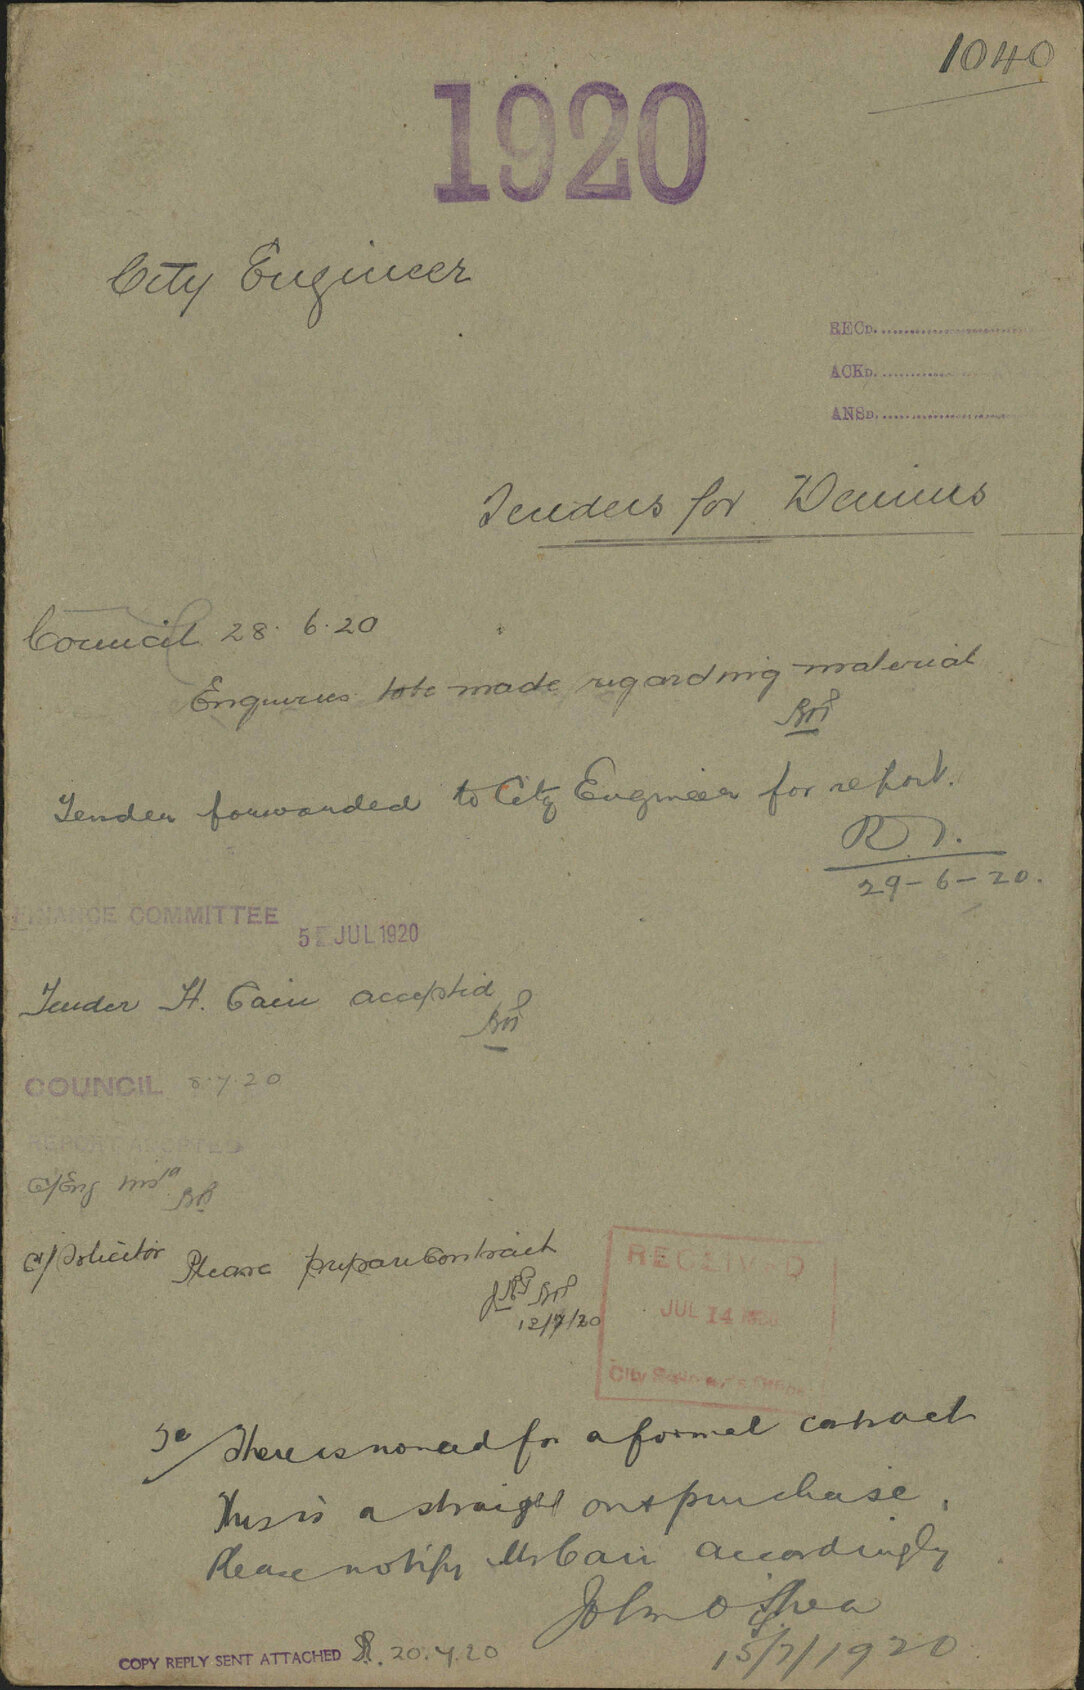 1040
1920
City Engineer
RECD.
ACKD.
ANSD.
Tenders for Denims
Council 28.6.20
Enquiries to be made regarding material
Tender forwarded to City Engineer for report.
29-6-20.
FINANCE COMMITTEE
5 JUL 1920
Tender H. Cain accepted
COUNCIL 8.7.20
REPORT ADOPTED
C/Eng
C/Solicitor Please prepare Contract
12/7/20
RECEIVED
JUL 14 1920
City Engineer's Office
There is no need for a formal contract
This is a straight out purchase.
Please notify Mr Cain accordingly
John O'Shea
15/7/1920
COPY REPLY SENT ATTACHED 20.7.20